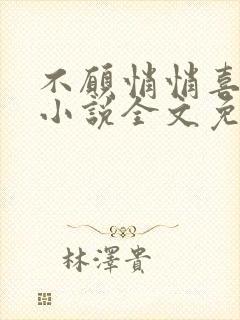 不願悄悄喜
小說全文免
林澤貴